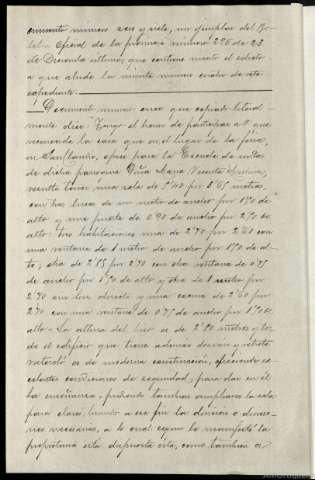 numento número seis y siete, un ejemplar del Bo-
letín Oficial de la provincia número 290 de 23
de Diciembre último, que contiene inserto el edicto
a que alude la minuta número cuatro de este
expediente.
Documento número once que copiado literal-
mente dice: "Tengo el honor de participar a V. que
reconocida la casa que en el lugar de la feria,
en San Claudio, ofrece para la Escuela de niñas
de dicha parroquia Doña María Vicenta
resulta tener una sala de 5'40 por 3'65 metros,
con dos luces de un metro de ancho por 1'50 de
alto y una puerta de 0'90 de ancho por 2'50 de
alto: tres habitaciones una de 2'70 por 2'60 con
una ventana de 1 metro de ancho por 1'50 de al-
to; otra de 2'85 por 2'70 con otra ventana de 0'75
de ancho por 1'50 de alto y otra de 1 metro por
2'70 sin luz directa y una cocina de 2'60 por
2'70 con una ventana de 0'75 de ancho por 1'50 de
alto. La altura del piso es de 2'90 metros y to-
do el edificio que tiene además desván y retrete
es de moderna construcción, ofreciendo ex-
celentes condiciones de seguridad, para dar en él
la enseñanza, pudiendo también ampliarse la sala
para clase, cuando a ese fin la división o divisio-
nes necesarias, a lo cual según lo manifestó la
propietaria está dispuesta ésta, como también a